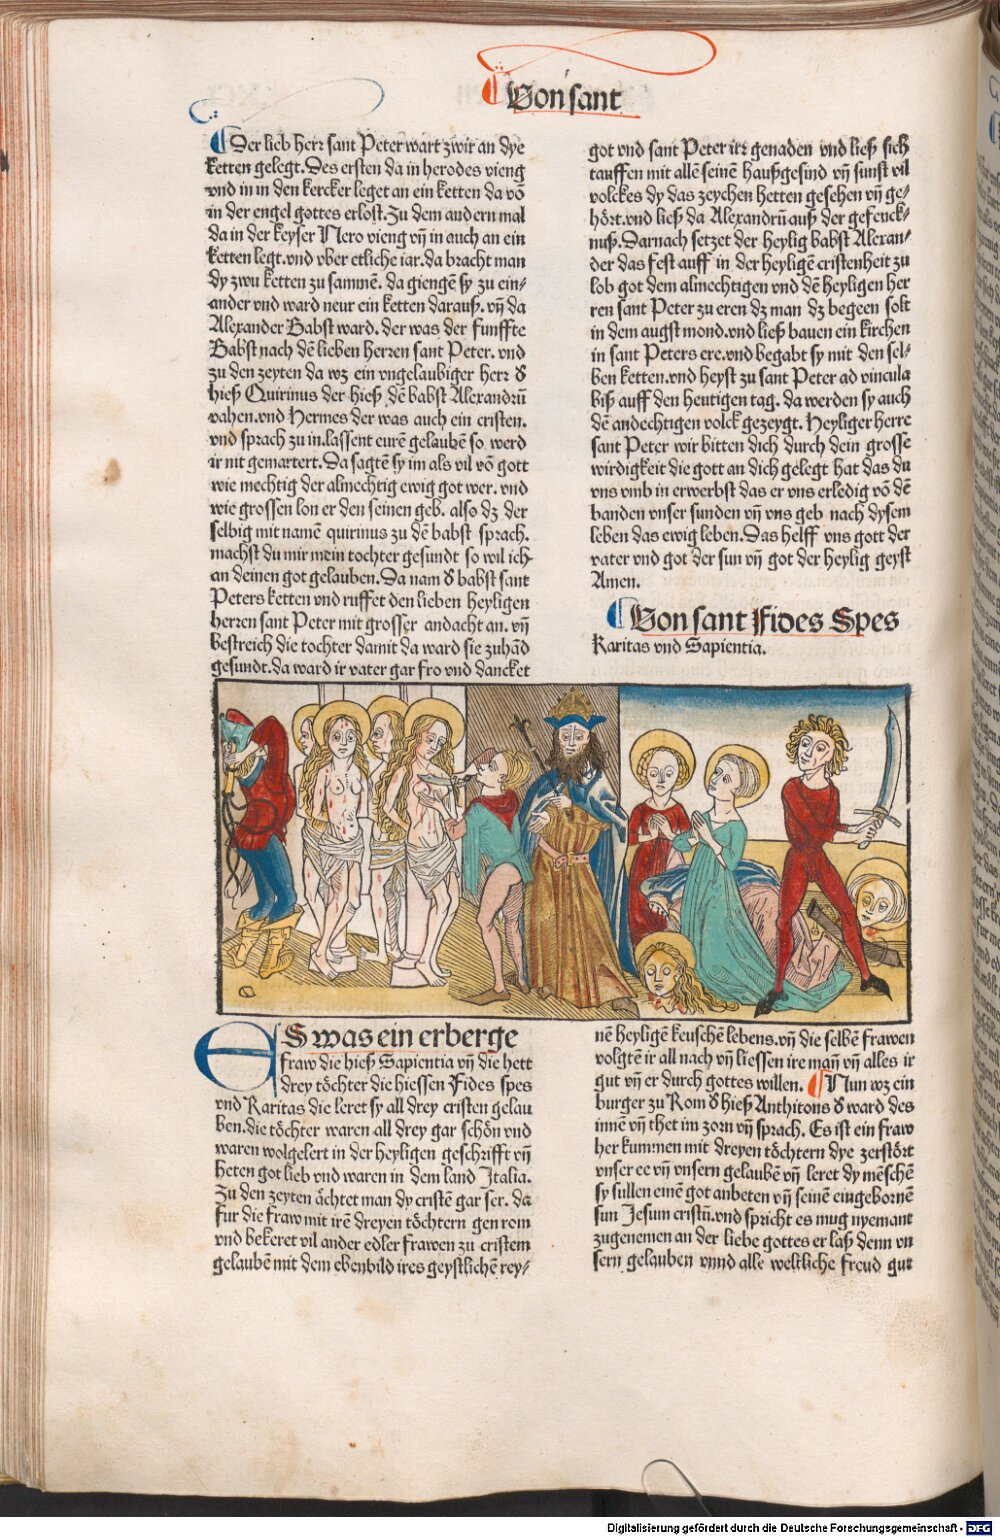 Von sant
Der lieb herr sant Peter wart zwir an dye
ketten gelegt. Des ersten da in herodes vieng
vnd in in den kercker leget an ein ketten da võ
in der engel gottes erlost. Zu dem andern mal
da in der keyser Nero vieng vñ in auch an ein
ketten legt. vnd vber etliche iar. da bracht man
dy zwu ketten zu sammẽ. da giengẽ sy zu ein-
ander vnd ward neur ein ketten darauß. vñ da
Alexander Babst ward. der was der funffte
Babst nach dẽ lieben herren sant Peter. vnd
zu den zeyten da wz ein vngelaubiger herr d̕
hieß Quirinus der hieß dẽ babst Alexandrũ
vahen. vnd Hermes der was auch ein cristen.
vnd sprach zu in. lassent eurẽ gelaubẽ so werd
ir nit gemartert. Da sagtẽ sy im als vil võ gott
wie mechtig der almechtig ewig got wer. vnd
wie grossen lon er den seinen geb. also dz der
selbig mit namẽ quirinus zu dẽ babst sprach.
machst du mir mein tochter gesundt so wil ich
an deinen got gelauben. Da nam d̕ babst sant
Peters ketten vnd ruffet den lieben heyligen
herren sant Peter mit grosser andacht an. vñ
bestreich die tochter damit da ward sie zuhãd
gesundt. da ward ir vater gar fro vnd dancket
got vnd sant Peter irr genaden vnd ließ sich
tauffen mit allẽ seinẽ haußgesind vñ sunst vil
volckes dy das zeychen hetten gesehen vñ ge-
hört. vnd ließ da Alexandrũ auß der gefenck-
nuß. Darnach setzet der heylig babst Alexan-
der das fest auff in der heyligẽ cristenheit zu
lob got dem almechtigen vnd dẽ heyligen her
ren sant Peter zu eren dz man dz begeen solt
in dem augst mond. vnd ließ bauen ein kirchen
in sant Peters ere. vnd begabt sy mit den sel-
ben ketten. vnd heyst zu sant Peter ad vincula
biß auff den heutigen tag. da werden sy auch
dẽ andechtigen volck gezeygt. Heyliger herre
sant Peter wir bitten dich durch dein grosse
wirdigkeit die gott an dich gelegt hat das du
vns vmb in erwerbst das er vns erledig võ dẽ
banden vnser sunden vñ vns geb nach dysem
leben das ewig leben. Das helff vns gott der
vater vnd got der sun vñ got der heylig geyst
Amen.
Von sant Fides Spes
Karitas vnd Sapientia.
ES was ein erberge
fraw die hieß Sapientia vñ die hett
drey töchter die hiessen Fides spes
vnd Karitas die leret sy all drey cristen gelau
ben. die töchter waren all drey gar schön vnd
waren wolgelert in der heyligen geschrifft vñ
heten got lieb vnd waren in dem land Italia.
Zu den zeyten ächtet man dy cristẽ gar ser. da
fur die fraw mit irẽ dreyen töchtern gen rom
vnd bekeret vil ander edler frawen zu cristem
gelaubẽ mit dem ebenbild ires geystlichẽ rey-
nẽ heyligẽ keuschẽ lebens. vñ die selbẽ frawen
volgtẽ ir all nach vñ liessen ire mañ vñ alles ir
gut vñ er durch gottes willen. Nun wz ein
burger zu Rom d̕ hieß Anthitons d̕ ward des
innẽ vñ thet im zorn vñ sprach. Es ist ein fraw
her kummen mit dreyen töchtern dye zerstört
vnser ee vñ vnsern gelaubẽ vñ leret dy mẽschẽ
sy sullen einẽ got anbeten vñ seinẽ eingebornẽ
sun Jesum cristũ. vnd spricht es mug nyemant
zugenemen an der liebe gottes er laß denn vn
sern gelauben vnnd alle weltliche freud gut
Digitalisierung gefördert durch die Deutsche Forschungsgemeinschaft - DFG